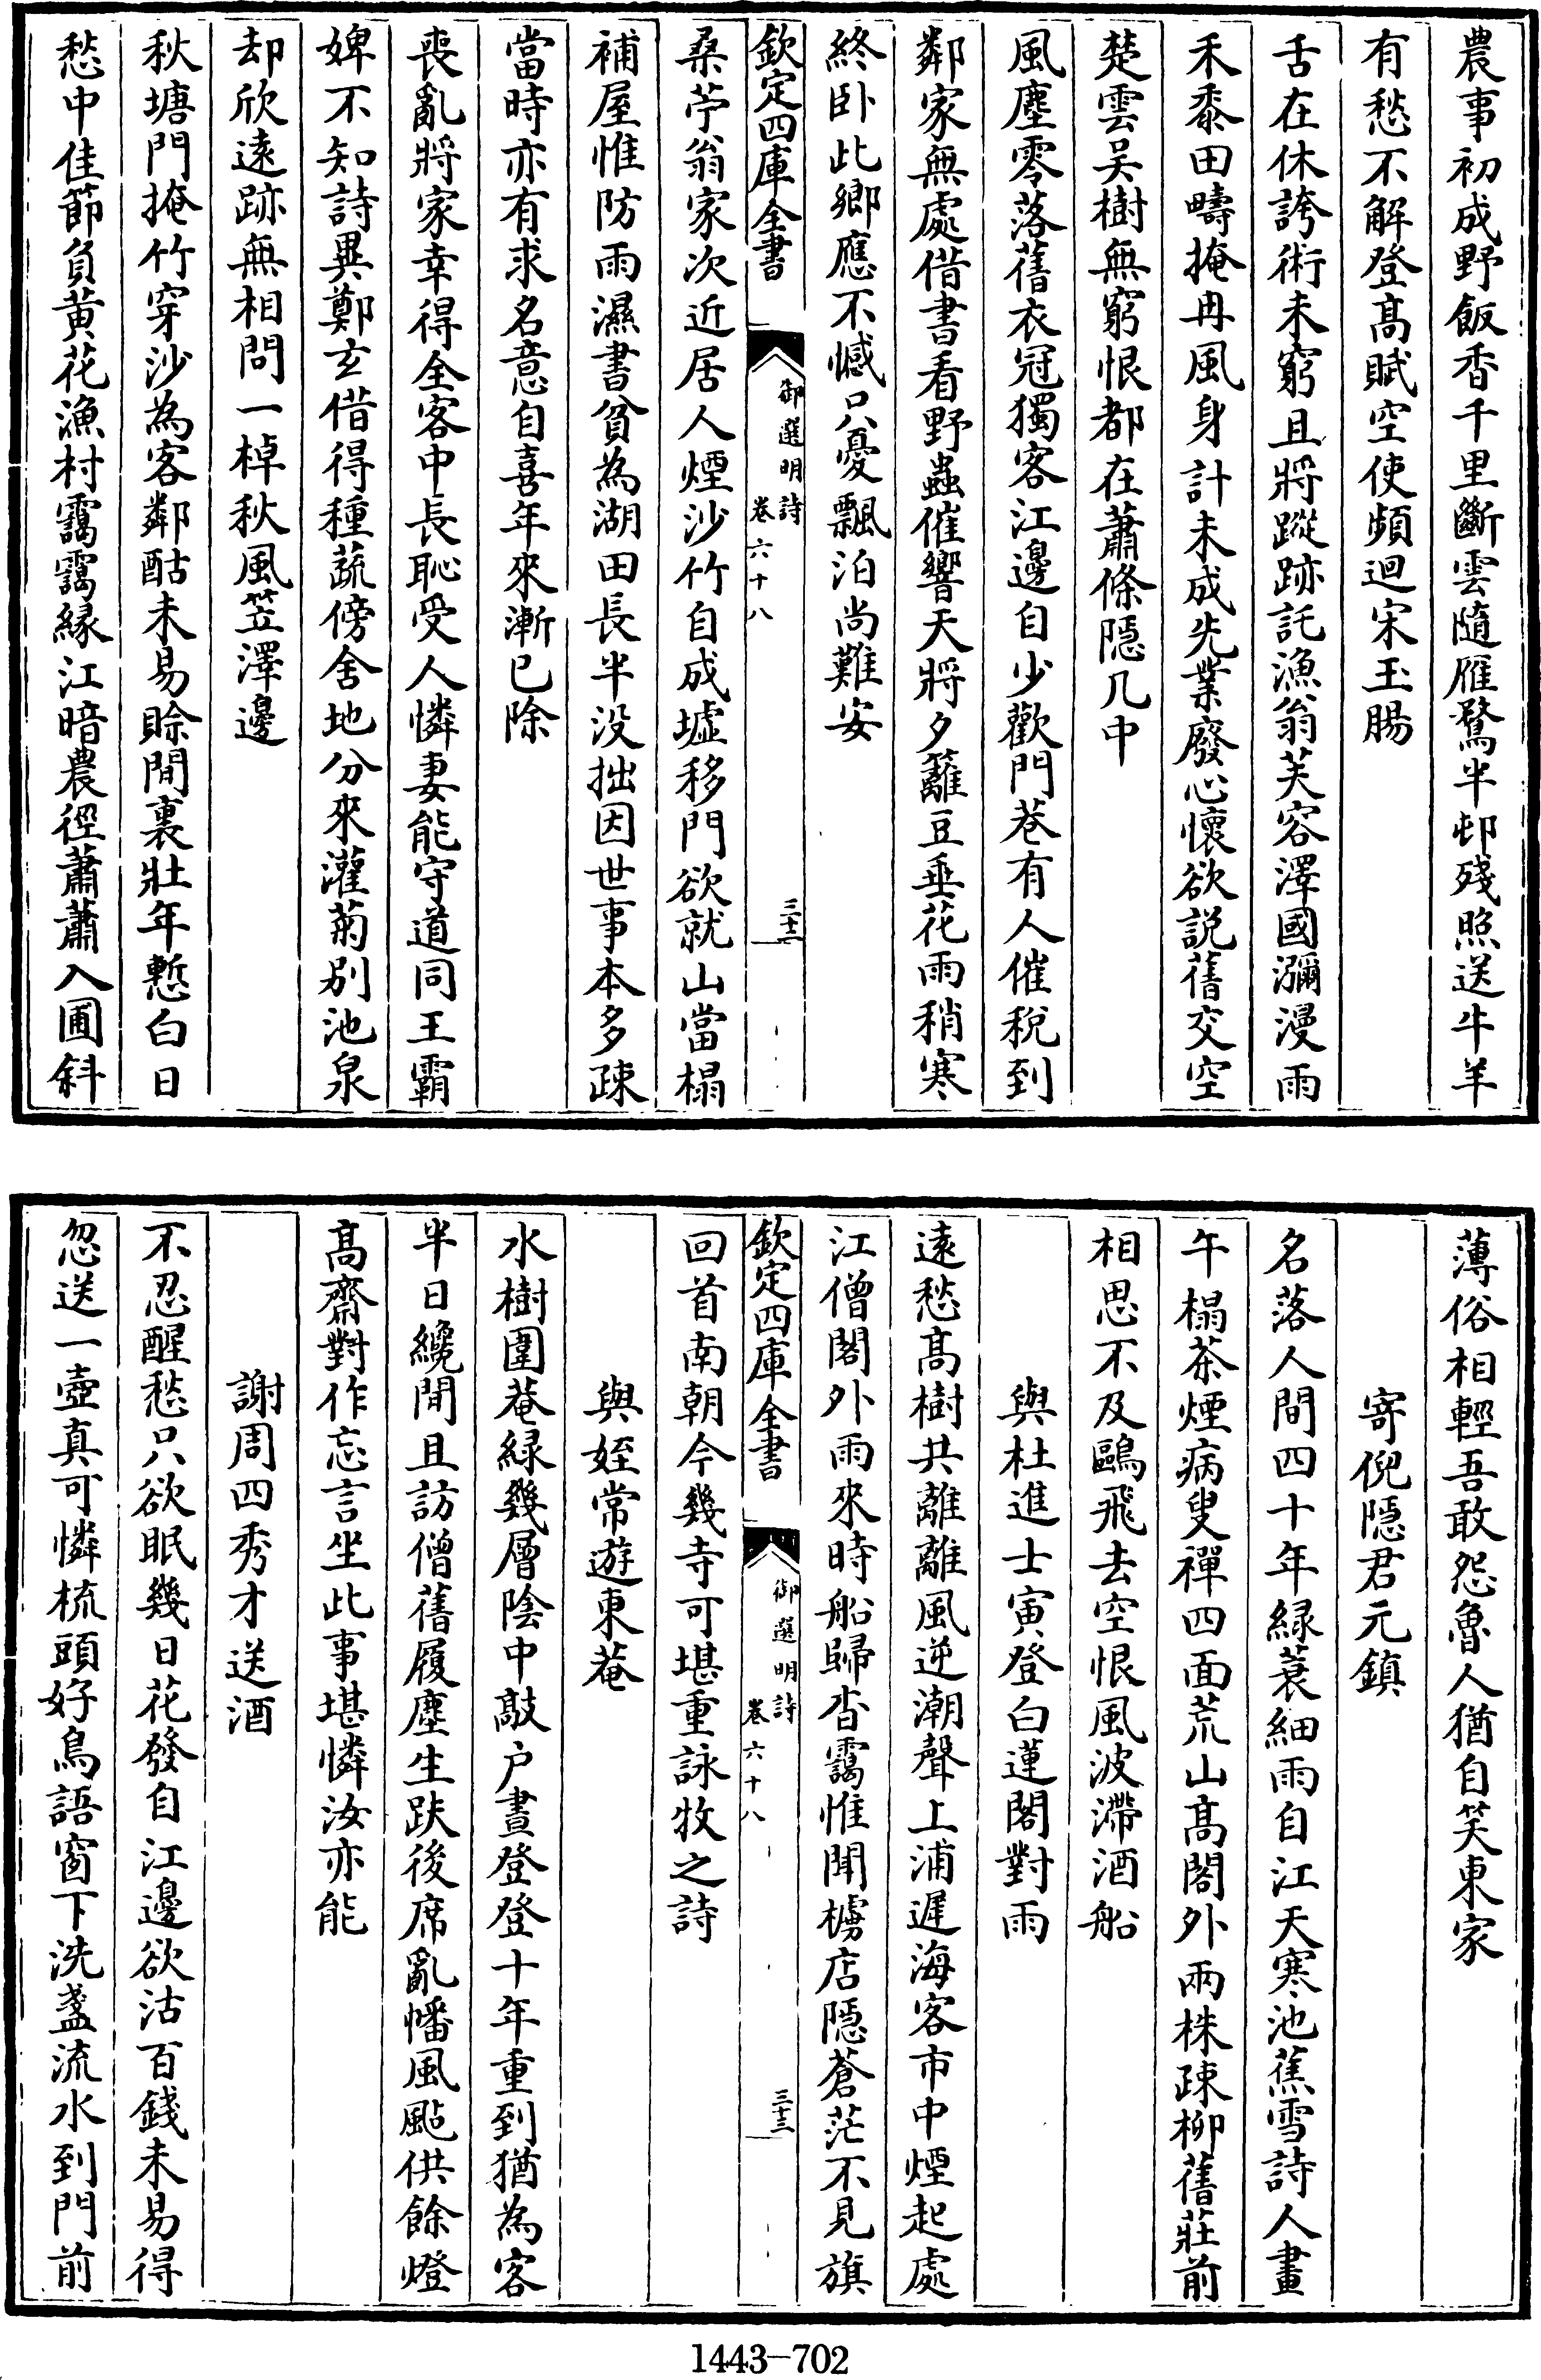 農事初成野飯香千里斷雲隨雁鶩半邨殘照送牛羊
有愁不解登高賦空使頻迴宋玉腸
舌在休誇術未窮且將蹤跡託漁翁芙容澤國瀰漫雨
禾黍田疇掩冉風身計未成先業廢心懷欲説舊交空
楚雲吳樹無窮恨都在蕭條隠几中
風塵零落舊衣冠獨客江邊自少歡門巷有人催稅到
鄰家無處借書看野蟲催響天將夕籬豆垂花雨稍寒
終卧此鄉應不憾只憂飄泊尚難安
欽定四庫全書
御選明詩
卷六十八
三十二
桑苧翁家次近居人煙沙竹自成墟移門欲就山當榻
補屋惟防雨濕書貧為湖田長半没拙因世事本多疎
當時亦有求名意自喜年來漸已除
喪亂將家幸得全客中長恥受人憐妻能守道同王霸
婢不知詩異鄭玄借得種蔬傍舍地分來灌菊別池泉
却欣遠跡無相問一棹秋風笠澤邊
秋塘門掩竹穿沙為客鄰酤未易賒閒裏壯年慙白日
愁中佳節負黃花漁村靄靄緣江暗農徑蕭蕭入圃斜
薄俗相輕吾敢怨魯人猶自笑東家
寄倪隠君元鎮
名落人間四十年緑蓑細雨自江天寒池蕉雪詩人畫
午榻茶煙病叟禪四面荒山高閣外兩株疎柳舊莊前
相思不及鷗飛去空恨風波滯酒船
與杜進士寅登白蓮閣對雨
遠愁高樹共離離風逆潮聲上浦遲海客市中煙起處
江僧閣外雨來時船歸杳靄惟聞櫓店隠蒼茫不見旗
欽定四庫全書
御選明詩
卷六十八
三十三
回首南朝今幾寺可堪重詠牧之詩
與姪常遊東菴
水樹圍菴緑幾層陰中敲户晝登登十年重到猶為客
半日纔閒且訪僧舊履塵生趺後席亂幡風颭供餘燈
高齋對作忘言坐此事堪憐汝亦能
謝周四秀才送酒
不忍醒愁只欲眠幾日花發自江邊欲沽百錢未易得
忽送一壺真可憐梳頭好鳥語窗下洗盞流水到門前
1443-702